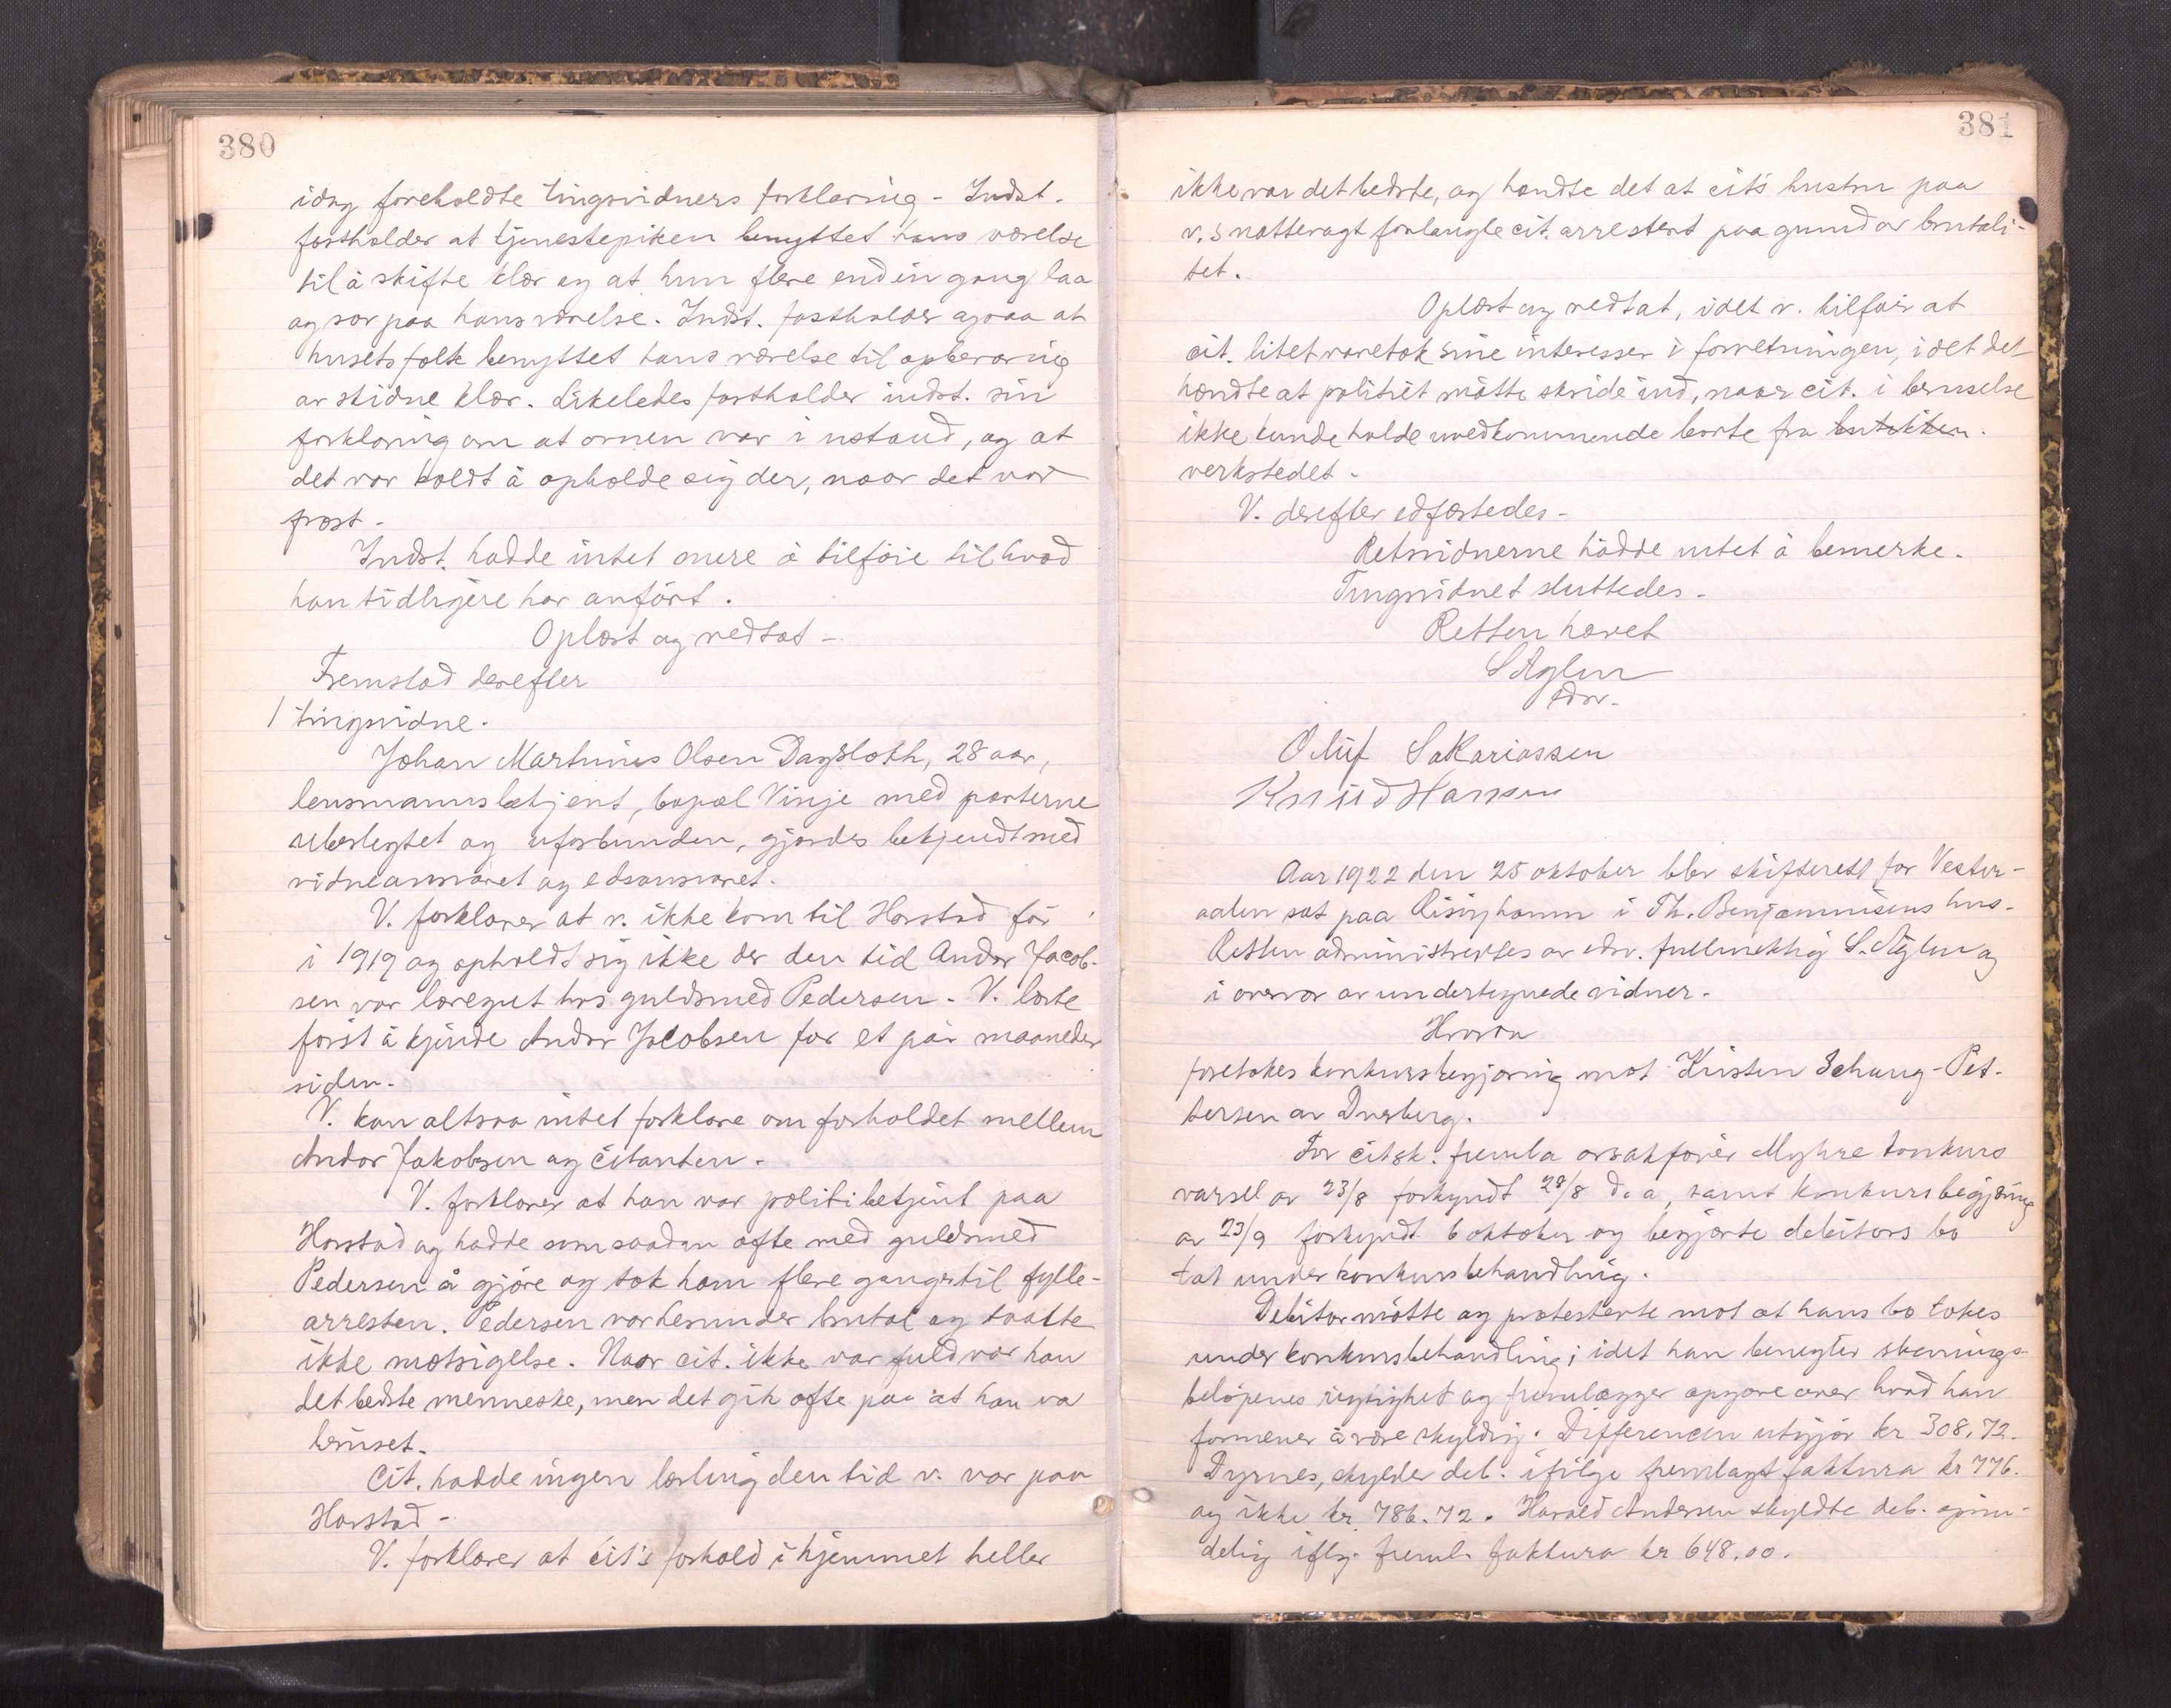 380
idag foreholdte tingsvidners forklaring - Indst.
fastholder at tjenestepiken benyttet hans værelse
til å skifte klær og at hun flere end en gang laa
og sov paa hans værelse. Indst. fastholder ogsaa at
husets folk benyttet hans værelse til opbevaring
av skidne klær. Likeledes fastholder indst. sin
forklaring om at ovnen var i ustand, og at
det var koldt å opholde sig der, naar det var
frost -
Indst. hadde intet mere å tilföie til hvad
han tidligere har anfört.
Oplæst og vedtat -
Fremstod derefter
1 tingsvidne.
Johan Martinus Olsen Dagsloth, 28 aar,
lensmannsbetjent, bopæl Vinje med parterne
ubeslegtet og uforbunden, gjordes bekjendt med
vidneansvaret og edsansvaret.
V. forklarer at v. ikke kom til Harstad för
i 1919 og opholdt sig ikke der den tid Andor Jacob-
sen var læregut hos guldsmed Pedersen - V. lærte
först å kjende Andor Jacobsen for et par maaneder
siden.
V. kan altsaa intet forklare om forholdet mellem
Andor Jakobsen og citanten.
V. forklarer at han var politibetjent paa
Harstad og hadde som saadan ofte med guldsmed
Pedersen å gjöre og tok ham flere ganger til fylle-
arresten. Pedersen var herunder brutal og taalte
ikke motsigelse. Naar cit. ikke var fuld var han
det bedste menneske, men det gik ofte paa at han va
beruset.
Cit. hadde ingen lærling den tid v. var paa
Harstad -
V. forklarer at cit's forhold i hjemmet heller
381
ikke var det bedste, og hændte det at cit's hustru paa
v.s nattevagt forlangte cit. arrestert paa grund av brutali-
tet.
Oplæst og vedtat, idet v. tilföier at
cit. litet varetok sine interesser i forretningen, idet det
hændte at politiet måtte skride ind, naar cit. i beruselse
ikke kunde holde uvedkommende borte fra butikken.
verkstedet.
V. derefter edfæstedes -
Retsvidnerne hadde intet å bemerke.
Tingsvidnet sluttedes -
Retten hævet
S Aglen
edsv.
Oluf Sakariassen
Knud Hansen
Aar 1922 den 25 oktober blev skifterett for Vester-
aalen sat paa Risöyhamn i Th. Benjaminsens hus.
Retten administrertes av edsv. fullmektig S. Aglen og
i overvær av undertegnede vidner.
Hvorda
foretokes konkursbegjæring mot Kristen Schaug-Pet-
tersen av Dverberg.
For citsk. fremla orsakförer Myhre konkurs
varsel av 23/8 forkyndt 28/8 d. a, samt konkursbegjæring
av 23/9 forkyndt 6 oktober og begjærte debitors bo
tat under konkursbehandling.
Debitor mötte og protesterte mot at hans bo tokes
under konkursbehandling; idet han benegter stevnings-
belöpenes rigtighet og fremlægger opgave over hvad han
formener å være skyldig. Differencen utgjör kr 308.72.
Dyrnes, skylder deb. ifölge fremlagt faktura kr 776.
og ikke kr. 786.72. Harald Andersen skyldte deb. oprin-
delig iflg. freml. faktura kr 648.00.